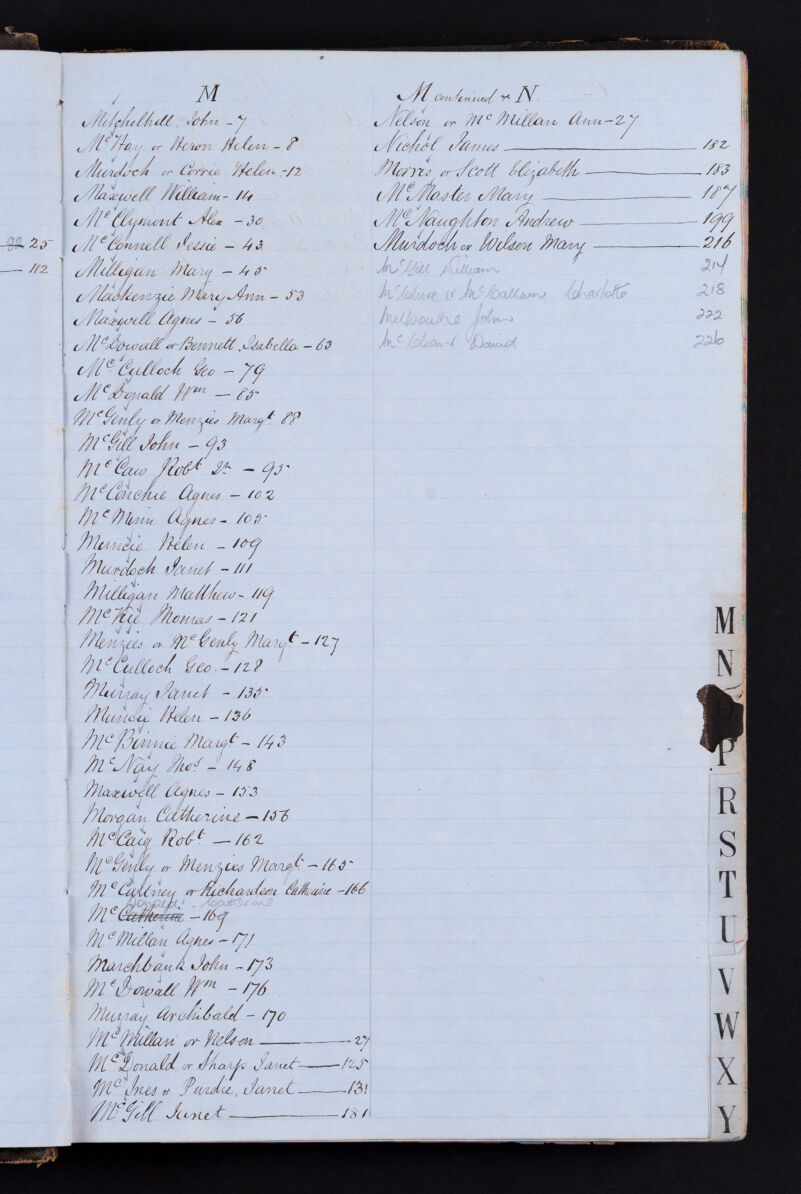 82 25
112
M
Mitchelhill, John - 7
McHay or Heron Helen - 8
Murdoch or Corrie Helen - 12
Maxwell William - 14
McClymont Alex - 30
McConnell Jessie - 43
Milligan Mary - 45
Mackenzie Mary Ann - 53
Maxwell Agnes - 56
McDowall or Bennett, Isabella - 63
McCulloch Geo - 79
McDonald Wm - 85
McGenly or Menzies Margt 88
McGill John - 93
McCaw Robt - 95
McConchie Agnes - 102
McMinn Agnes - 105
Muncie Helen - 109
Murdoch Janet - 111
Milligan Matthew - 119
McKie Thomas - 121
Menzies or McGenly Margt - 127
McCulloch Geo - 128
Murray Janet - 135
Muncie Helen - 136
McBirnie Margt - 143
McNay Thos - 148
Maxwell Agnes - 153
Morgan Catherine - 156
McCaig Robt - 162
McGenly or Menzies Margt - 165
McCultney or Richardson Catherine - 166
Donald Catherine
Mc Catherine - 169
McMillan Agnes - 171
Marchbank John - 173
McDowall Wm - 176
Murray Archibald - 170
McMillan or Nelson 27
McDonald or Sharp Janet 125
McInes or Purdie, Janet 131
McGill Janet 181
M continued & N
Nelson or McMillan Ann - 27
Nichol James 182
Morris, or Scott Elizabeth 183
McMaster Mary 187
McNaughton Andrew 199
Murdoch or Wilson Mary 216
McGill William 214
McClure or McCallum Charlotte 218
John 222
McClean David 226
M
N
P
R
S
T
U
V
W
X
Y